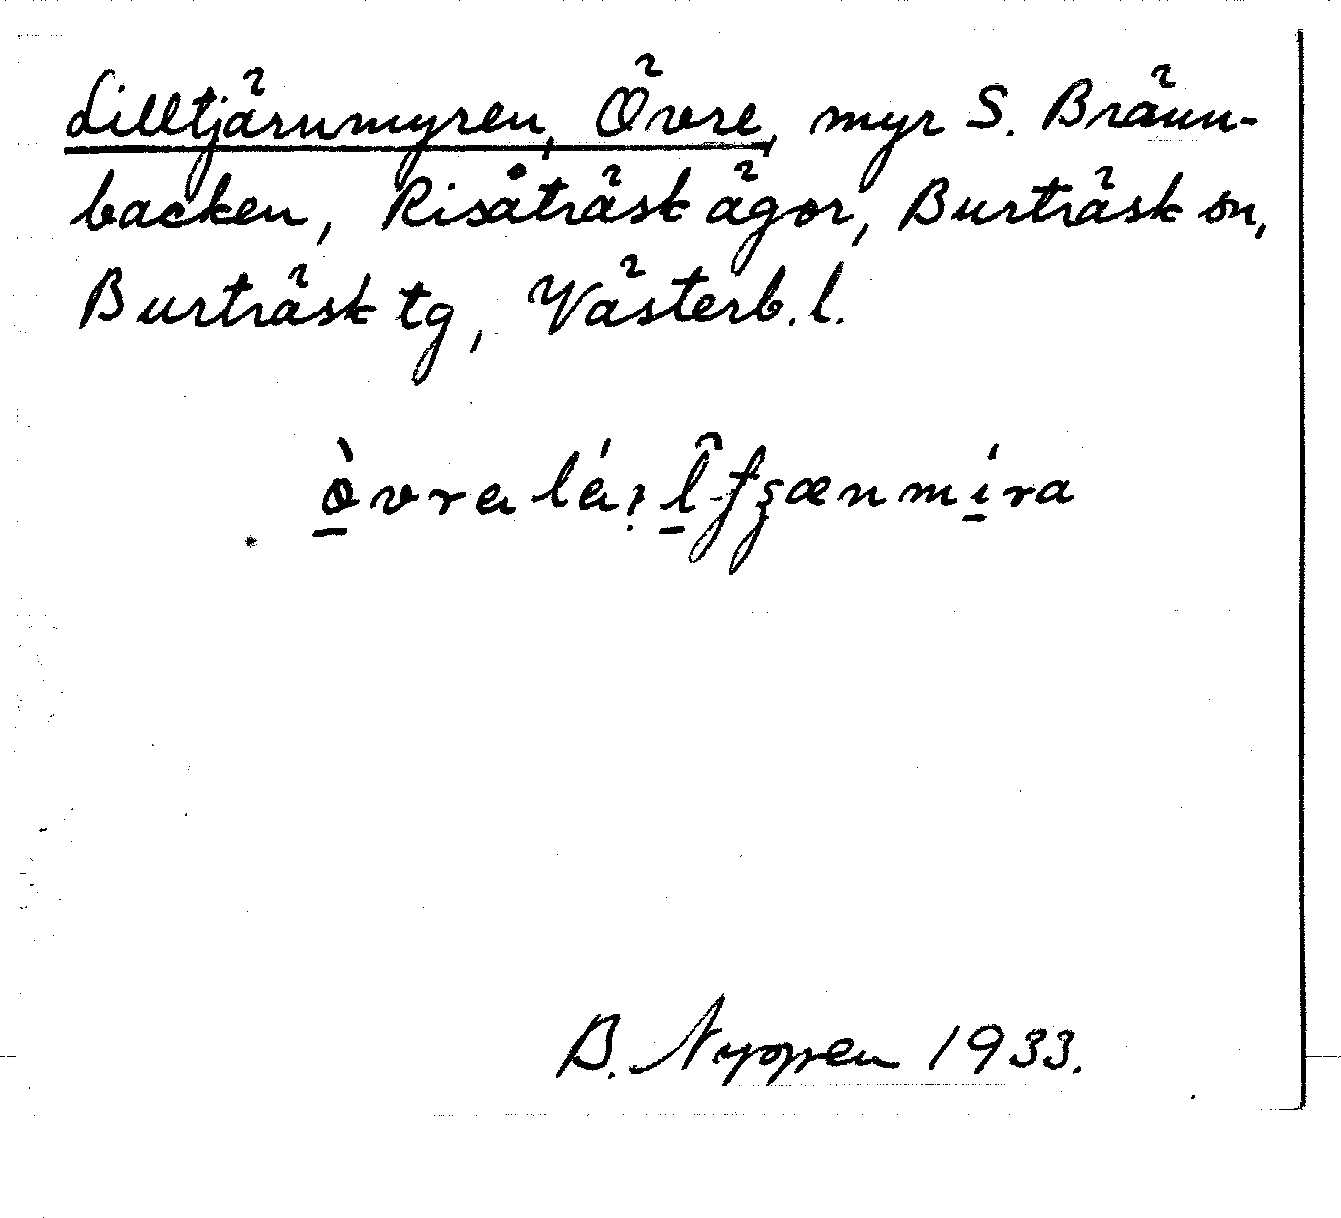 Lilltjärnmyren, Övre, myr S. Bränn-
backen, Risåträsk ägor, Burträsk sn,
Burträsk tg, Västerb. l.
B. Nyppen 1933.